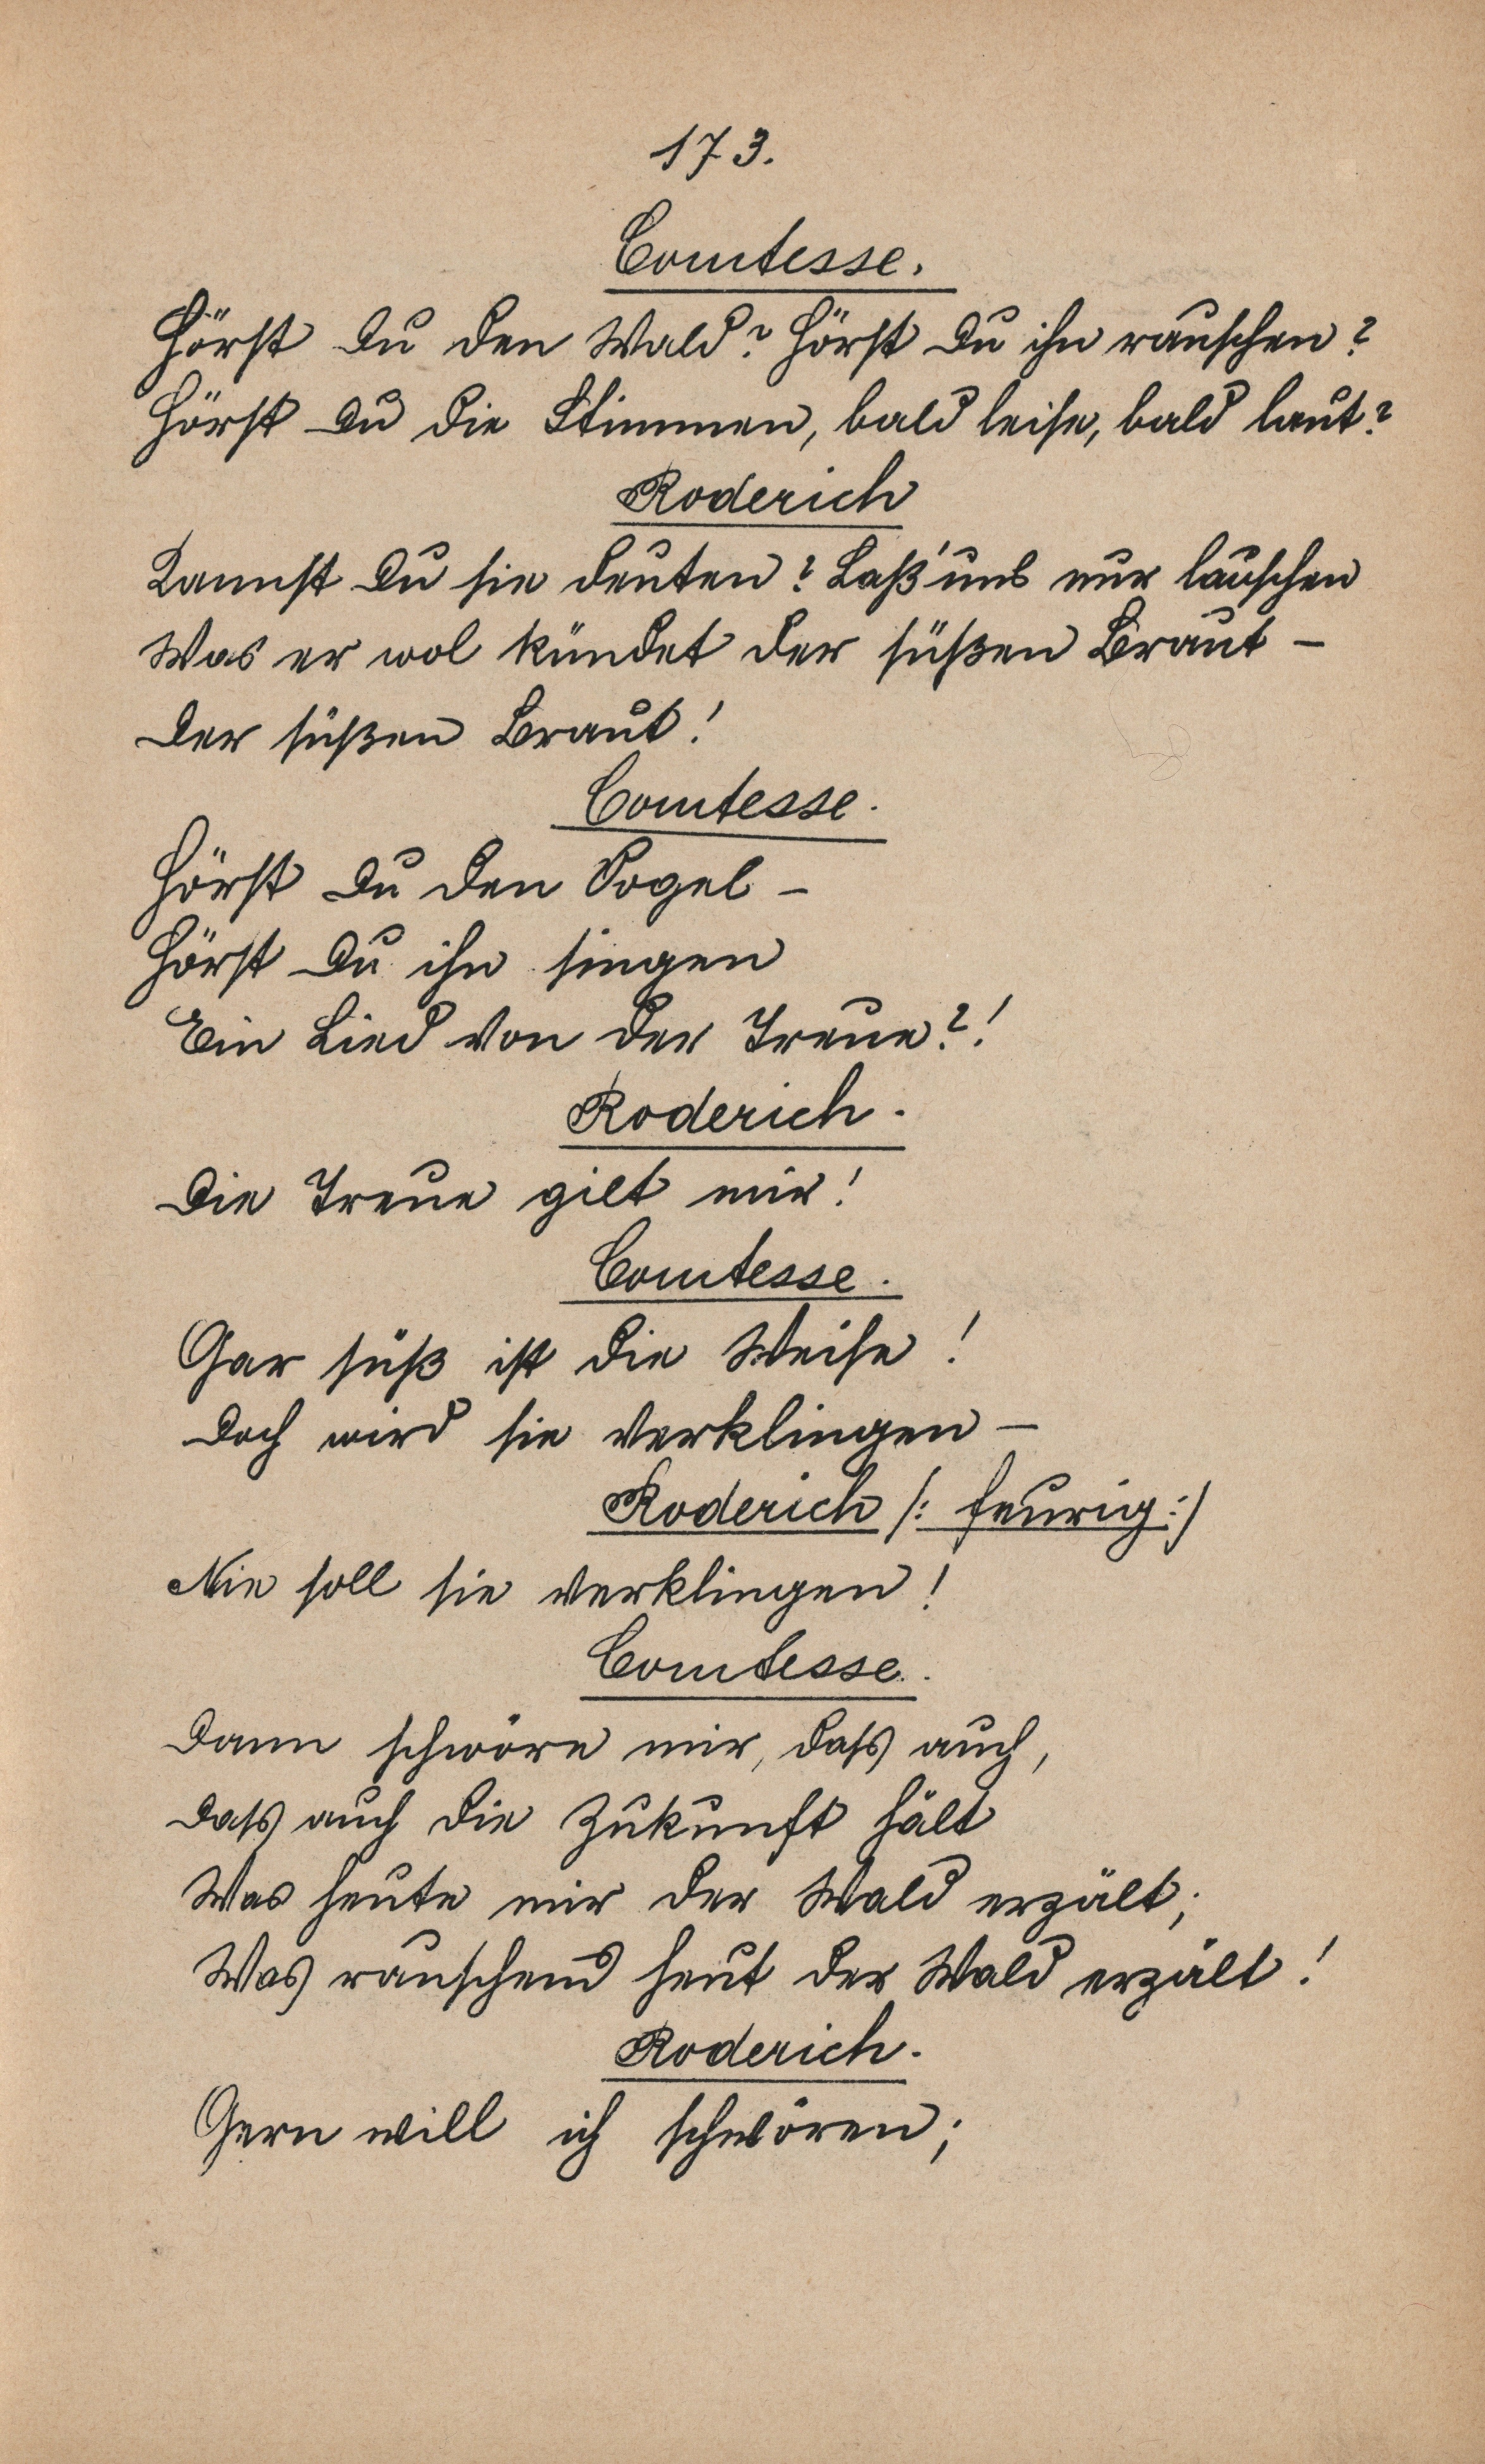 173.
Comtesse.
Hörst Du den Wald? Hörst Du ihn rauschen?
Hörst Du die Stimmen, bald leise, bald laut?
Roderich
Kannst Du sie deuten? Laß' uns nur lauschen
Was er wol kündet der süßen Braut –
Der süßen Braut!
Comtesse.
Hörst Du den Vogel –
Hörst Du ihn singen
Ein Lied von der Treue?!
Roderich.
Die Treue gilt mir!
Comtesse.
Gar süß ist die Weise!
Doch wird sie verklingen –
Roderich /: feurig :/
Nie soll sie verklingen!
Comtesse.
Dann schwöre mir, daß auch,
Daß auch die Zukunft hält
Was heute mir der Wald erzält;
Was rauschend heut der Wald erzält!
Roderich.
Gern will ich schwören;